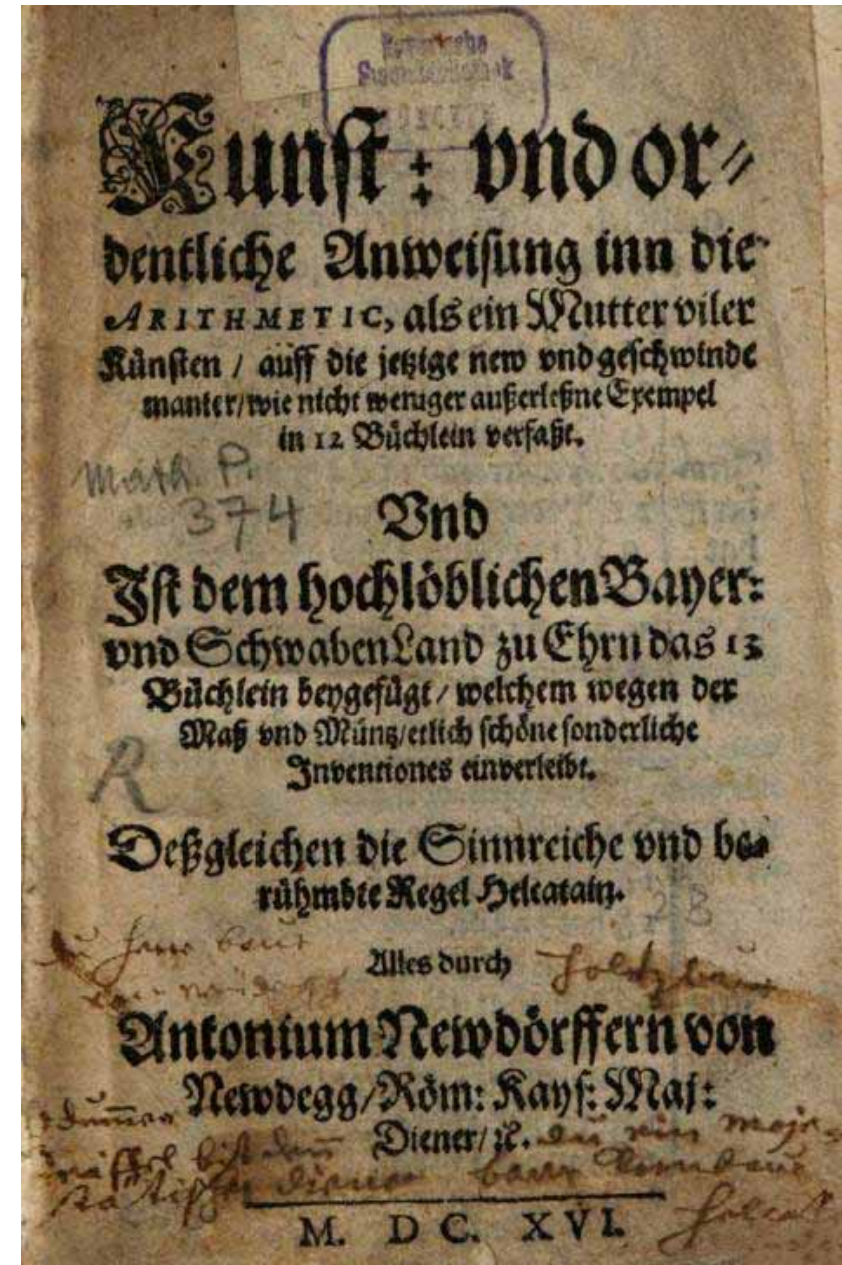 Bayerische
Staatsbibliothek
MÜNCHEN
Kunst: vnd or⸗
dentliche Anweisung inn die
ARITHMETIC, als ein Mutter viler
Künsten / auff die jetzige new vnd geschwinde
manier/wie nicht weniger außerleßne Exempel
in 12 Büchlein verfaßt.
Math. P.
374
Vnd
Ist dem hochlöblichen Bayer:
vnd SchwabenLand zu Ehrn das 13
Büchlein beygefügt/ welchem wegen der
Maß vnd Müntz/etlich schöne sonderliche
Inventiones einverleibt.
R
Deßgleichen die Sinnreiche vnd be⸗
rühmbte Regel Helcatain.
Alles durch
Antonium Newdörffern von
Newdegg/Röm: Kays: Maj:
Diener/ ꝛc.
M. D C. X V I.